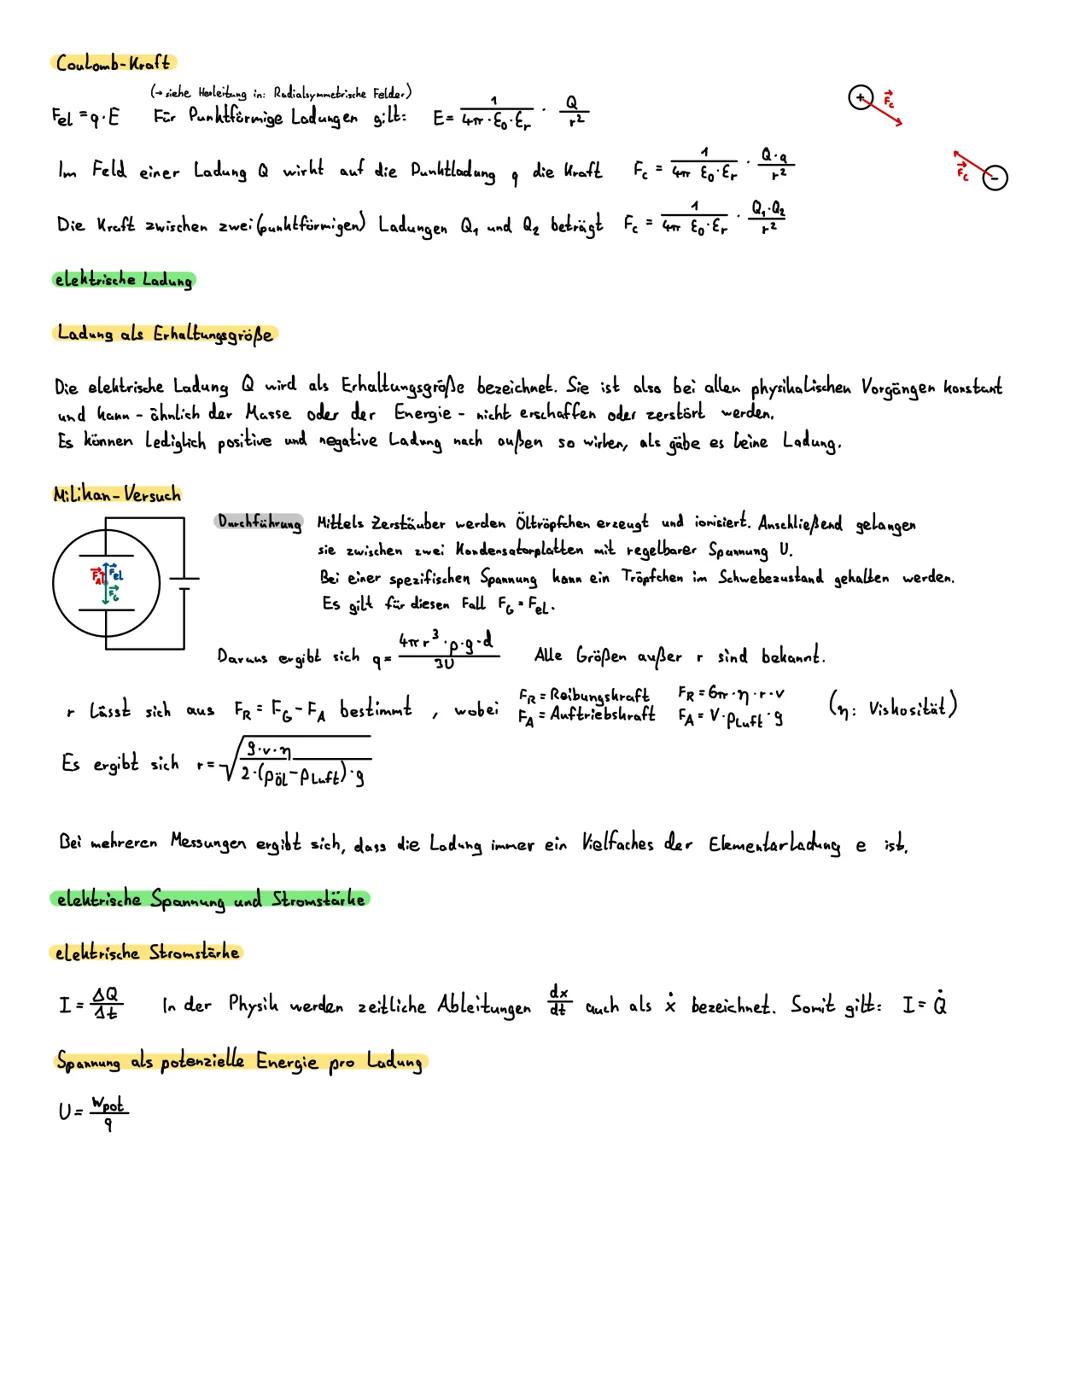 Coulomb-Kraft
(→ siehe Herleitung in: Radialsymmetrische Felder)
Fel = q·E Für Punktförmige Ladungen gilt: E = 1/(4π·ε₀·εᵣ) · Q/r²
+ F⃗c
Im Feld einer Ladung Q wirkt auf die Punktladung q die Kraft Fc = 1/(4π ε₀·εᵣ) · Q·q/r²
F⃗c -
Die Kraft zwischen zwei (punktförmigen) Ladungen Q₁ und Q₂ beträgt Fc = 1/(4π ε₀·εᵣ) · Q₁·Q₂/r²
elektrische Ladung
Ladung als Erhaltungsgröße
Die elektrische Ladung Q wird als Erhaltungsgröße bezeichnet. Sie ist also bei allen physikalischen Vorgängen konstant
und kann - ähnlich der Masse oder der Energie - nicht erschaffen oder zerstört werden.
Es können lediglich positive und negative Ladung nach außen so wirken, als gäbe es keine Ladung.
Milikan-Versuch
Durchführung Mittels Zerstäuber werden Öltröpfchen erzeugt und ionisiert. Anschließend gelangen
sie zwischen zwei Kondensatorplatten mit regelbarer Spannung U.
Bei einer spezifischen Spannung kann ein Tröpfchen im Schwebezustand gehalten werden.
Es gilt für diesen Fall F_G = Fel.
F⃗A F⃗el
F⃗G
Daraus ergibt sich q = (4πr³·ρ·g·d)/(3U) Alle Größen außer r sind bekannt.
r lässt sich aus F_R = F_G - F_A bestimmt , wobei F_R = Reibungskraft F_R = 6π·η·r·v (η: Viskosität)
F_A = Auftriebskraft F_A = V·ρLuft·g
Es ergibt sich r = √((9·v·η)/(2·(ρöl - ρLuft)·g))
Bei mehreren Messungen ergibt sich, dass die Ladung immer ein Vielfaches der Elementarladung e ist.
elektrische Spannung und Stromstärke
elektrische Stromstärke
I = ΔQ/Δt In der Physik werden zeitliche Ableitungen dx/dt auch als ẋ bezeichnet. Somit gilt: I = Q̇
Spannung als potenzielle Energie pro Ladung
U = Wpot/q